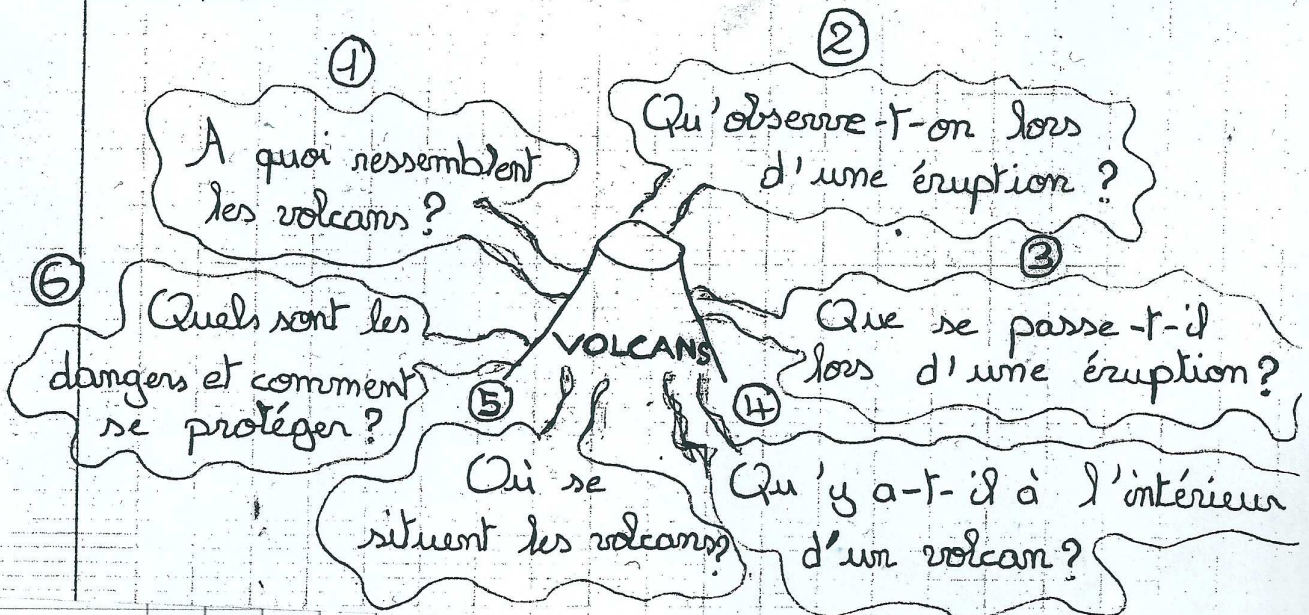 ①
A quoi ressemblent
les volcans ?
②
Qu'observe-t-on lors
d'une éruption ?
③
Que se passe-t-il
lors d'une éruption ?
④
Qu'y a-t-il à l'intérieur
d'un volcan ?
⑤
Où se
situent les volcans ?
⑥
Quels sont les
dangers et comment
se protéger ?
VOLCANS